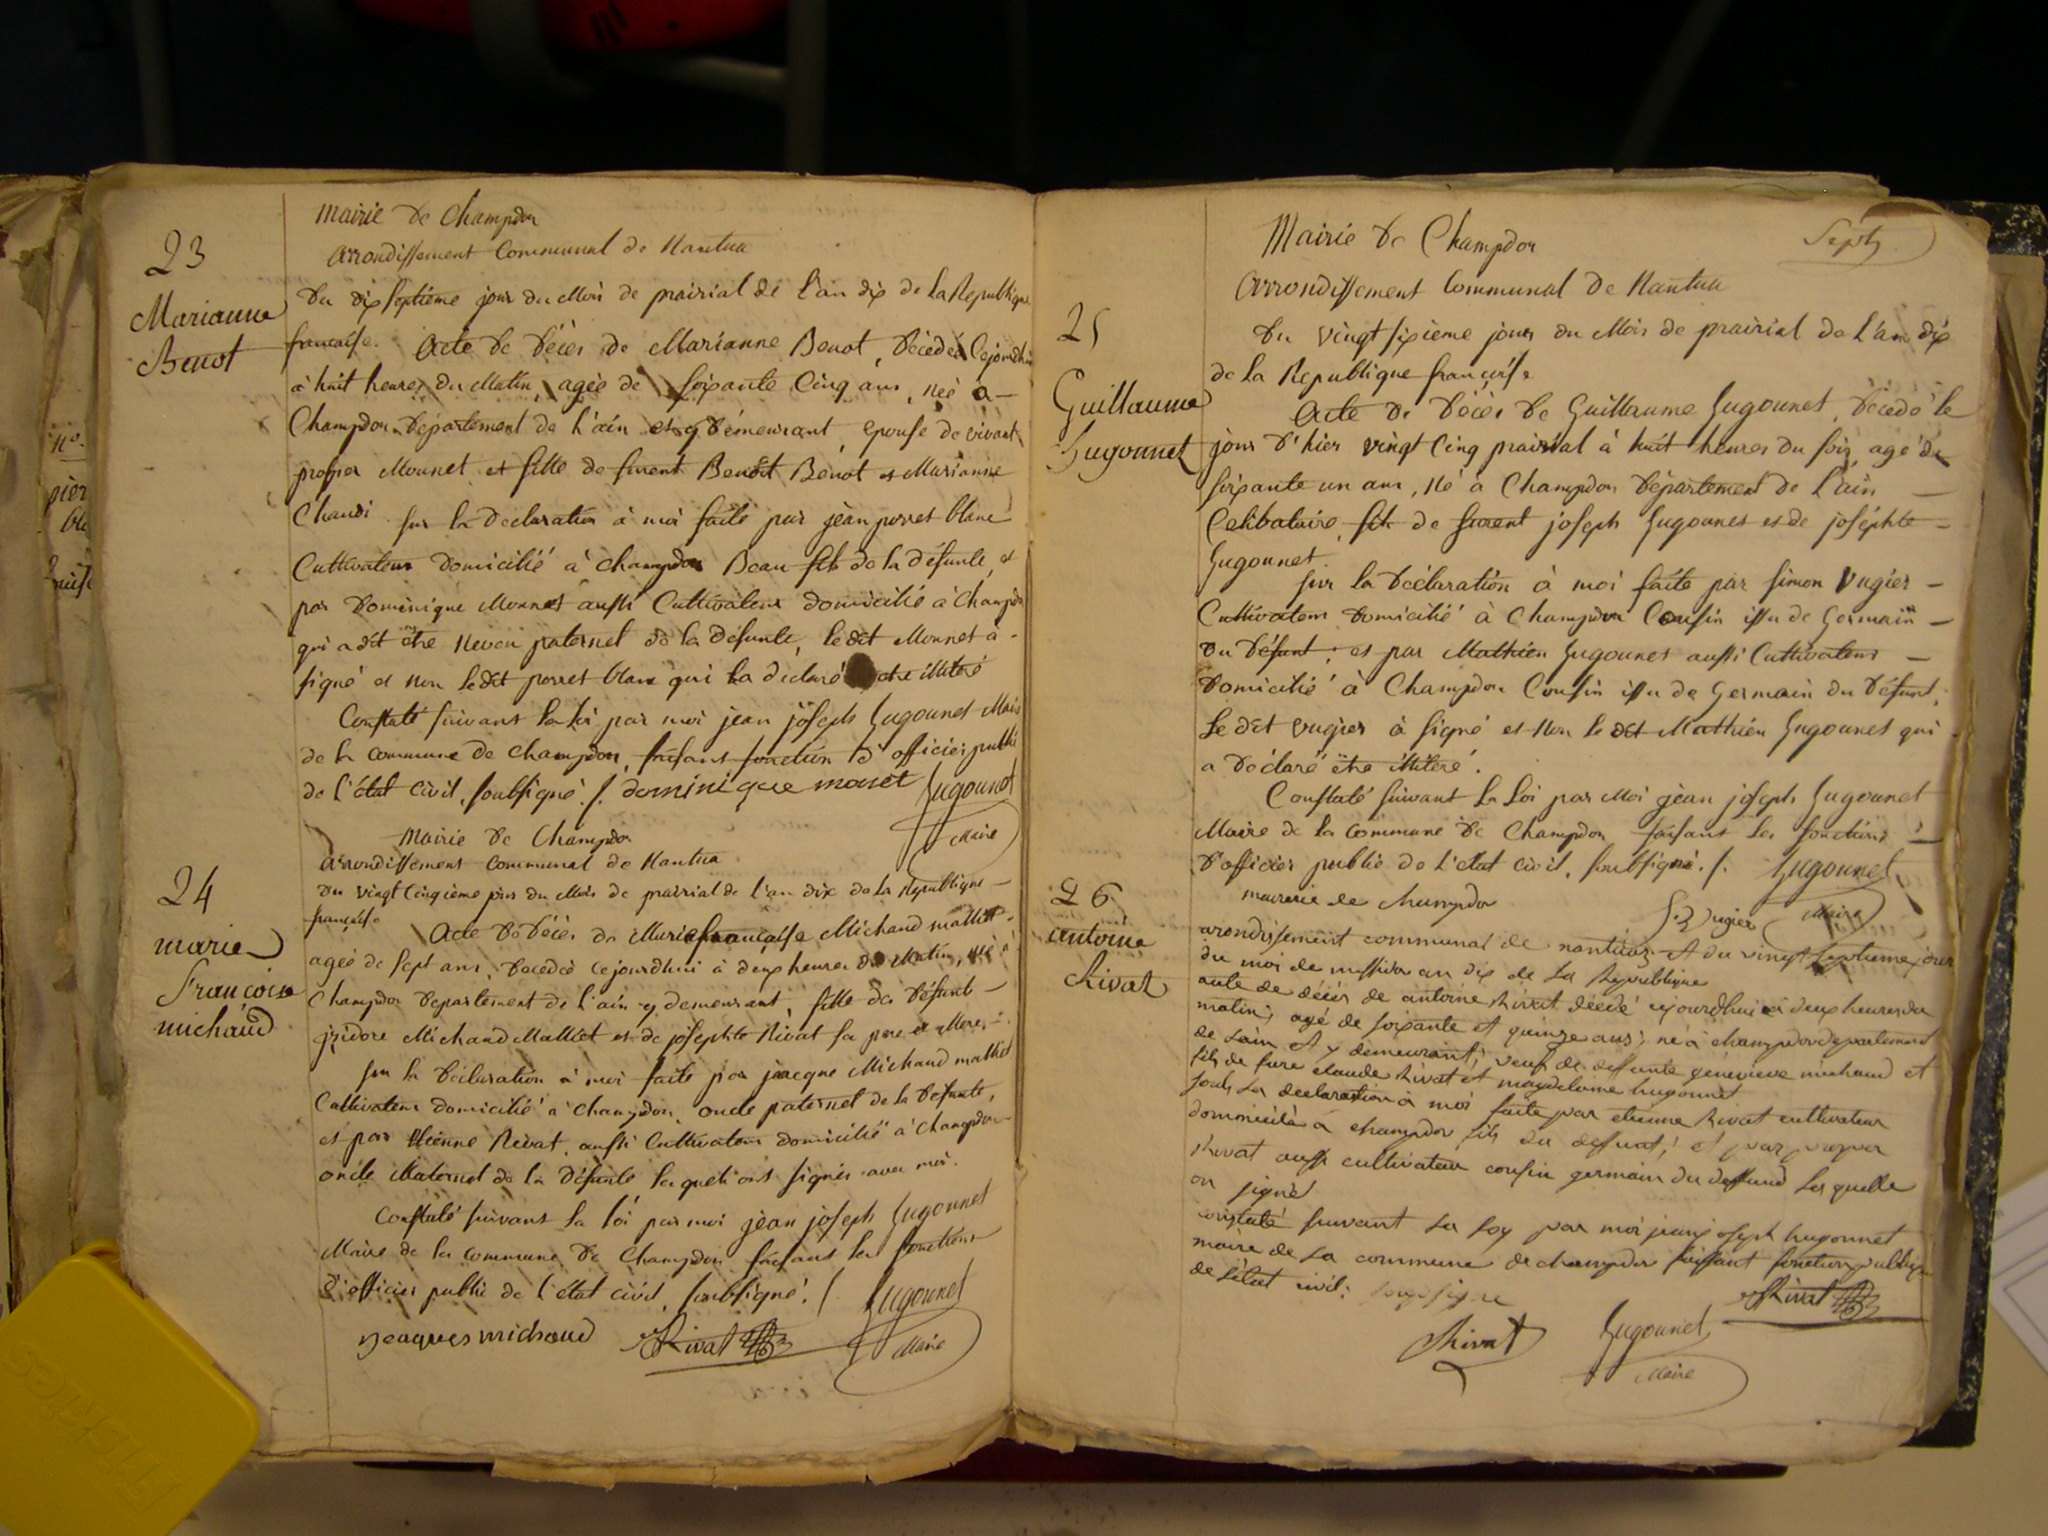 23
Marianne
Benot
Mairie de Champdor
arrondissement Communal de Nantua
Du dix septième jour du Mois de prairial de l'an dix de la Republique
francaise. Acte de Décès de Marianne Benot, Décédeé Cejourdhui
à huit heures du Matin, agée de soixante Cinq ans, née à
Champdor Département de l'ain et y Démeurant, epouse de vivant
prosper Monnet et fille de furent Benoît Bénot et Marianne
Chaudi sur la Declaration à moi faite par jèan perret blanc
Cultivateur Domicilié à Champdor Beau fils de la Défunte, et
par Dominique Monnet aussi Cultivateur domicilié à Champdor
qui a dit être Neveu paternel de la Défunte, le dit Monnet à
signé et Non le dit perret blanc qui la déclaré etre illiteré
Constaté suivant la Loi par moi jean joseph Hugonnet Maire
de la Commune de Champdor, faisant fonction d'officier public
de l'état Civil, soubsigné ./. dominique monet Hugonnet
Maire
24
marie
Francoise
michaud
Mairie de Champdor
arrondissement Communal de Nantua
Du vingt Cinqième jour du Mois de prairial de l'an dix de la Republique
française Acte De Décès de Marie française Michaud malliet
ageé de Sept ans, Décédeé Cejourdhui à deux heures du Matin, née à
Champdor Departement de l'ain y demeurant, fille des Défunts
jsidore Michaud Malliet et de josephte Rivat sa pere et Mere
Sur la Déclaration à moi faite par jacque Michaud malliet
Cultivateur domicilié à Champdor, oncle paternel de la Défunte,
et par etienne Rivat, aussi Cultivateur domicilié à Champdor
oncle Maternel de la Défunte lesquels ont signés avec moi.
Constaté suivant la loi par moi jèan joseph Hugonnet
Maire de la Commune de Champdor faisant les fonctions
D'officier public de l'état civil, soubsigné ./. Hugonnet
Jeaques michaud Rivat Maire
Sept
25
Guillaume
Hugonnet
Mairie de Champdor
Arrondissement Communal de Nantua
Du vingt sixieme jour du Mois de prairial de l'an dix
de la Republique françoise
Acte de Décès de Guillaume Hugonnet, Décédé le
jour d'hier vingt Cinq prairial à huit heures du soir, agé de
soixante un ans, Né à Champdor Département de l'ain
Celibataire, fils de furent joseph Hugonnet et de joséphte
Hugonnet.
Sur la Déclaration à moi faite par simon Vugier
Cultivateur Domicilié à Champdor Cousin issu de Germain
du Défunt, et par Mathieu Hugonnet aussi Cultivateur
Domicilié à Champdor Cousin issu de Germain du Défunt,
Le dit vugier à signé et Non le dit Matthieu Hugonnet qui
a Déclaré être illiteré.
Constaté suivant la Loi par Moi jèan joseph Hugonnet
Maire de la Commune de Champdor faisant les fonctions
D'officier public de l'état civil, soubsigné ./. Hugonnet
S. Vugier Maire
26
antoine
Rivat
mairie de champdor
arondissement communal de nantua Et du vingt septieme jour
du moi de messidor an dix de la Republique
acte de décès de antoine Rivat décédé cejourdhui à deux heures du
matin, agé de soixante et quinze ans, né à champdor departement
de Lain et y demeurant, veuf de deffunte génevieve michaud et
fils de fure claude Rivat et magdelaine hugonnet
sous La declaration à moi faite par etienne Rivat cultivateur
dommicilié à champdor fils du deffunt, et par
Rivat aussi cultivateur cousin germain du deffund Les quelle
on signé
constaté suivant La Loy par moi jean joseph hugonnet
maire de La commune de champdor faissant fonction publique
de Létat civil, sousigne
Rivat Hugonnet Rivat
Maire